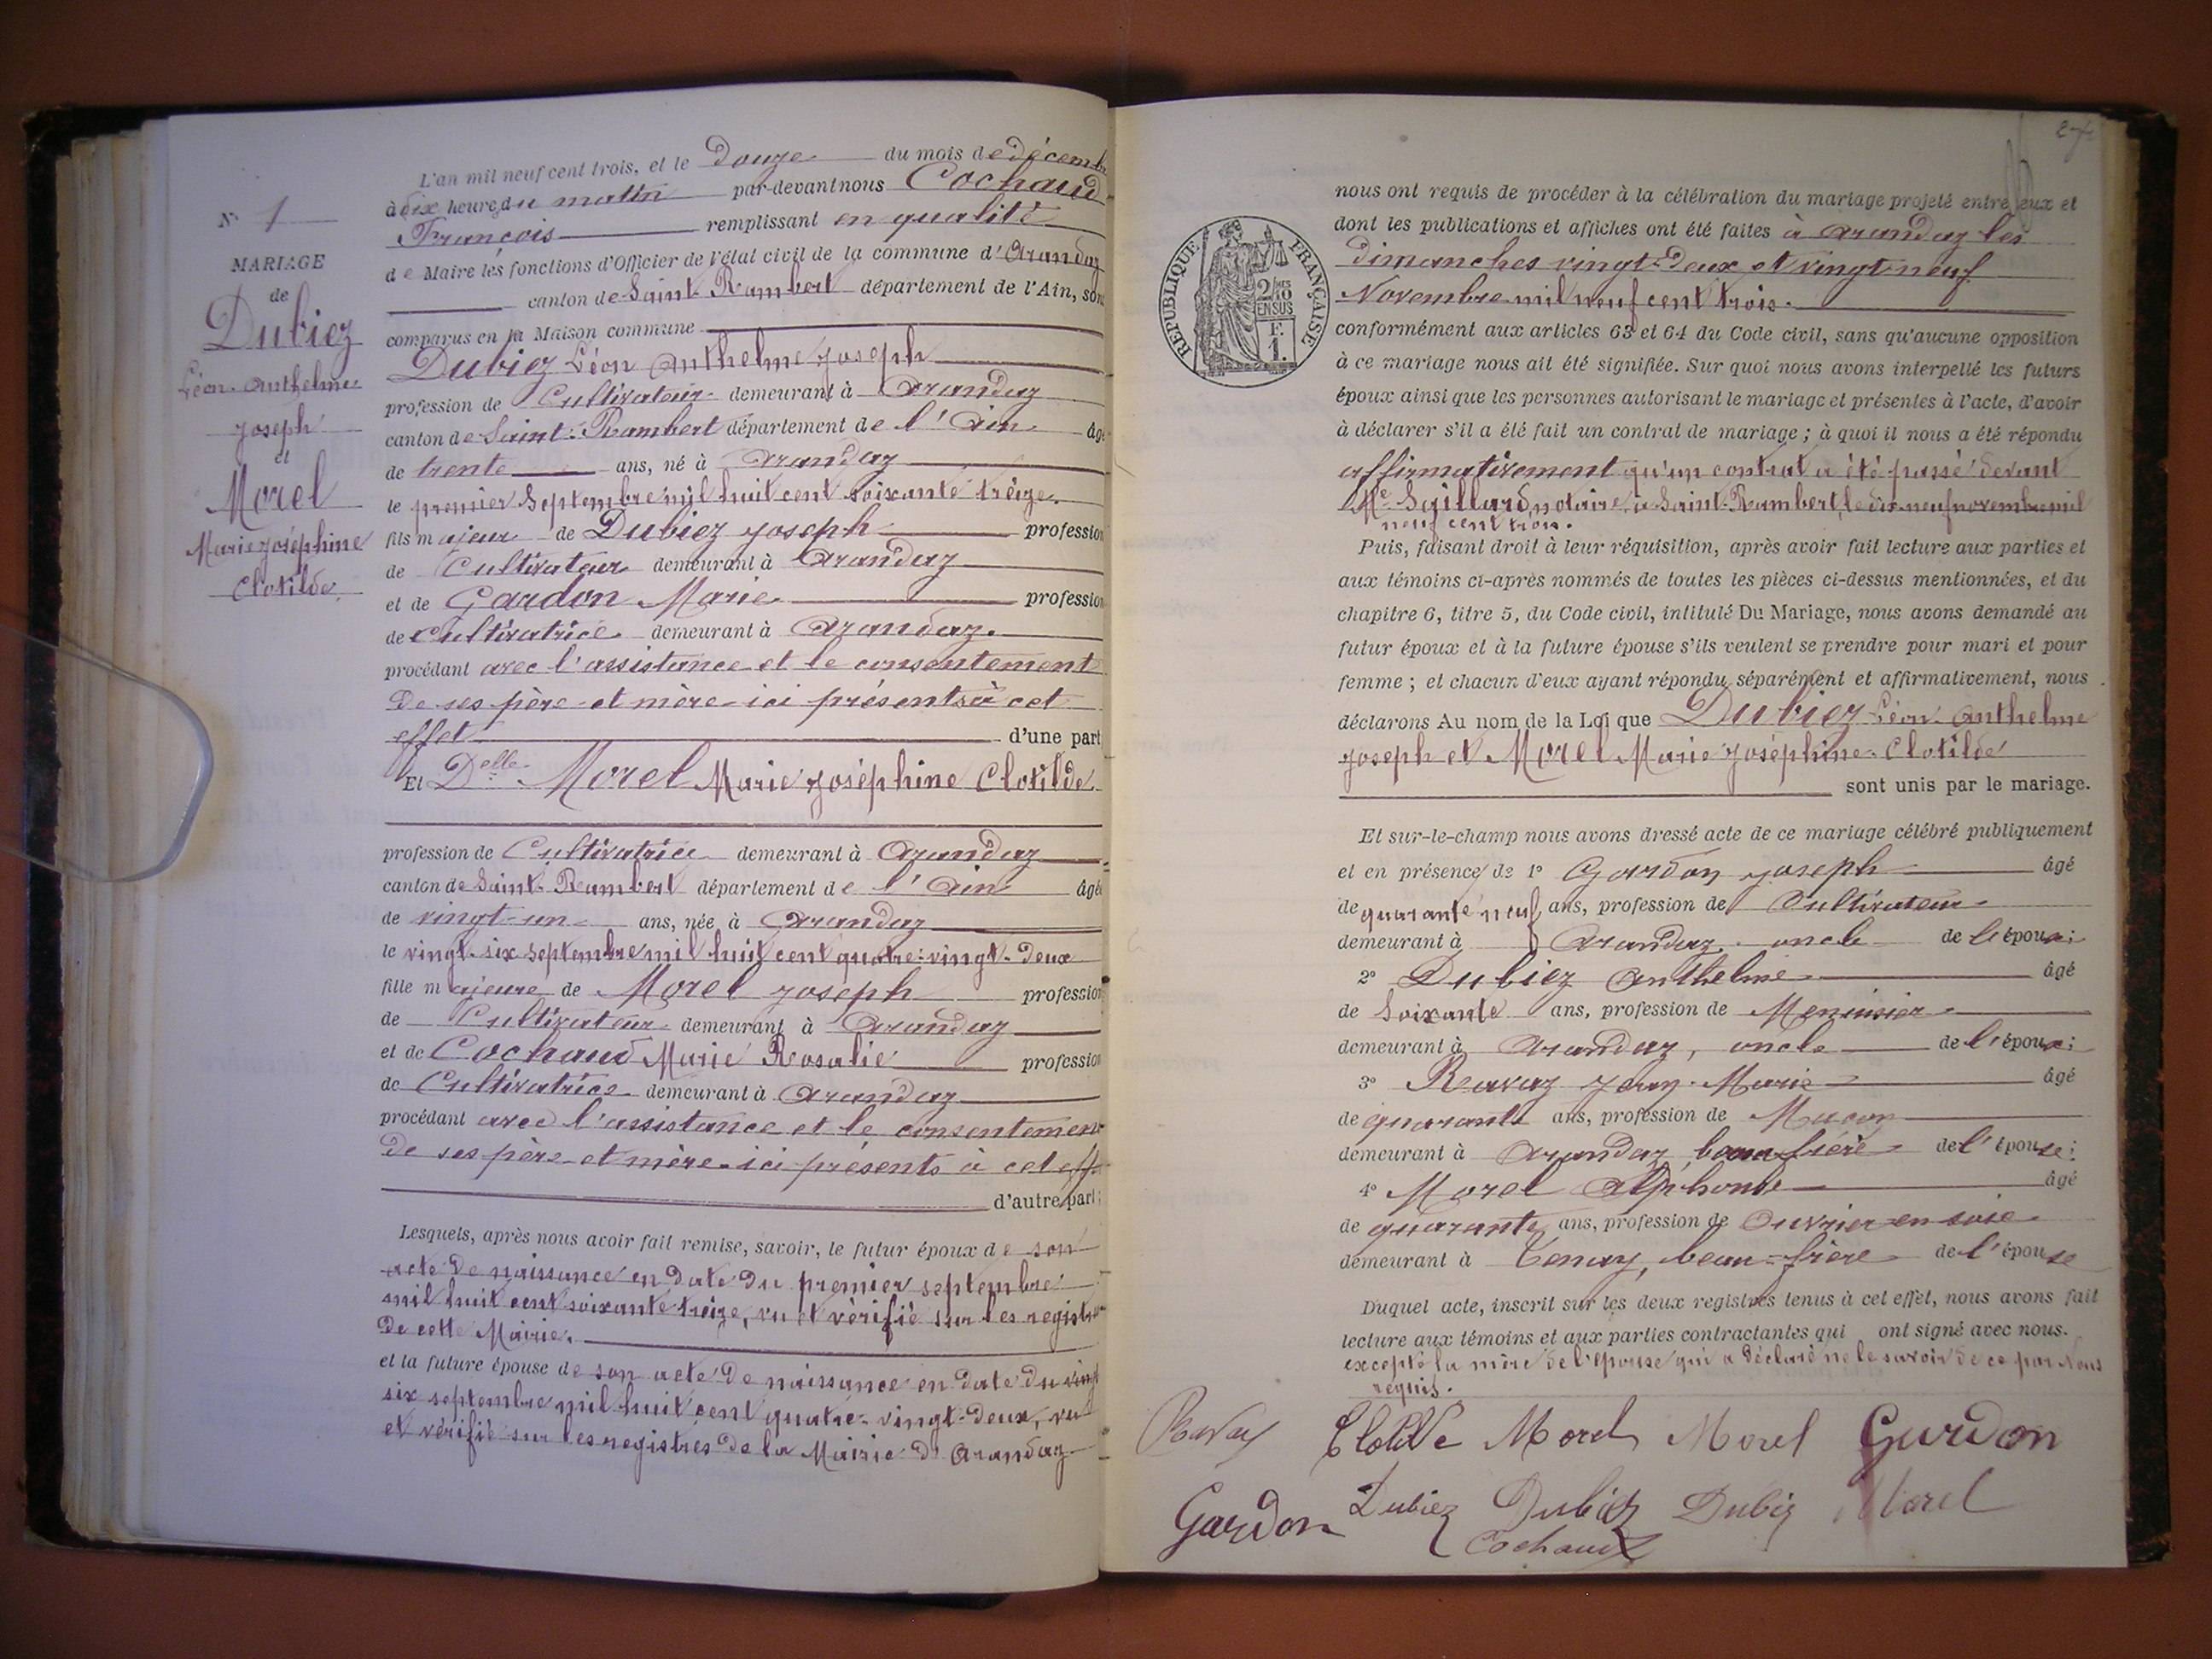 N° 1
MARIAGE
de
Dubiez
Léon-Anthelme
Joseph
et
Morel
Marie Joséphine
Clotilde
L'an mil neuf cent trois, et le Douze du mois de décemb
à dix heures du matin par-devant nous Cochaud
François remplissant en qualité
de Maire les fonctions d'Officier de l'état civil de la commune d'Arandaz
canton de Saint-Rambert département de l'Ain, son
comparus en la Maison commune
Dubiez Léon Anthelme Joseph
profession de Cultivateur demeurant à Arandaz
canton de Saint-Rambert département de l'Ain âgé
de trente ans, né à Arandaz
le premier Septembre mil huit cent soixante treize.
fils majeur de Dubiez Joseph profession
de Cultivateur demeurant à Arandaz
et de Gardon Marie profession
de cultivatrice demeurant à Arandaz.
procédant avec l'assistance et le consentement
de ses père et mère ici présents à cet
effet d'une part
Et Delle Morel Marie Joséphine Clotilde
profession de Cultivatrice demeurant à Arandaz
canton de Saint-Rambert département de l'Ain âgée
de vingt-un ans, née à Arandaz
le vingt-six septembre mil huit cent quatre-vingt-deux
fille majeure de Morel Joseph profession
de Cultivateur demeurant à Arandaz
et de Cochaud Marie Rosalie profession
de Cultivatrice demeurant à Arandaz
procédant avec l'assistance et le consentement
de ses père et mère ici présents à cet eff
d'autre part;
Lesquels, après nous avoir fait remise, savoir, le futur époux de son
acte de naissance en date du premier septembre
mil huit cent soixante treize, vu et vérifié sur les registres
de cette Mairie.
et la future épouse de son acte de naissance en date du vingt
six septembre mil huit cent quatre-vingt-deux, vu
et vérifié sur les registres de la Mairie d'Arandaz
27
RÉPUBLIQUE FRANÇAISE
2/10 EN SUS
F. 1.
nous ont requis de procéder à la célébration du mariage projeté entre eux et
dont les publications et affiches ont été faites à Arandaz les
dimanches vingt-deux et vingt-neuf
Novembre mil neuf cent trois.
conformément aux articles 63 et 64 du Code civil, sans qu'aucune opposition
à ce mariage nous ait été signifiée. Sur quoi nous avons interpellé les futurs
époux ainsi que les personnes autorisant le mariage et présentes à l'acte, d'avoir
à déclarer s'il a été fait un contrat de mariage; à quoi il nous a été répondu
affirmativement qu'un contrat a été passé devant
Me Saillard, notaire à Saint-Rambert, le dix-neuf novembre mil
neuf cent trois.
Puis, faisant droit à leur réquisition, après avoir fait lecture aux parties et
aux témoins ci-après nommés de toutes les pièces ci-dessus mentionnées, et du
chapitre 6, titre 5, du Code civil, intitulé Du Mariage, nous avons demandé au
futur époux et à la future épouse s'ils veulent se prendre pour mari et pour
femme; et chacun d'eux ayant répondu séparément et affirmativement, nous
déclarons Au nom de la Loi que Dubiez Léon-Anthelme
Joseph et Morel Marie Joséphine-Clotilde
sont unis par le mariage.
Et sur-le-champ nous avons dressé acte de ce mariage célébré publiquement
et en présence de 1° Gardon Joseph âgé
de quarante neuf ans, profession de Cultivateur
demeurant à Arandaz, oncle de l'époux;
2° Dubiez Anthelme âgé
de Soixante ans, profession de Menuisier
demeurant à Arandaz, oncle de l'époux;
3° Ravaz Jean-Marie âgé
de quarante ans, profession de Maçon
demeurant à Arandaz, beau-frère de l'épouse;
4° Morel Alphonse âgé
de quarante ans, profession de Ouvrier en soie
demeurant à Tenay, beau-frère de l'épouse
Duquel acte, inscrit sur les deux registres tenus à cet effet, nous avons fait
lecture aux témoins et aux parties contractantes qui ont signé avec nous.
excepté la mère de l'épouse qui a déclaré ne le savoir de ce par Nous
requis.
Ravaz Clotilde Morel Morel Gardon
Gardon Dubiez Dubiez Dubiez Morel
Cochaud